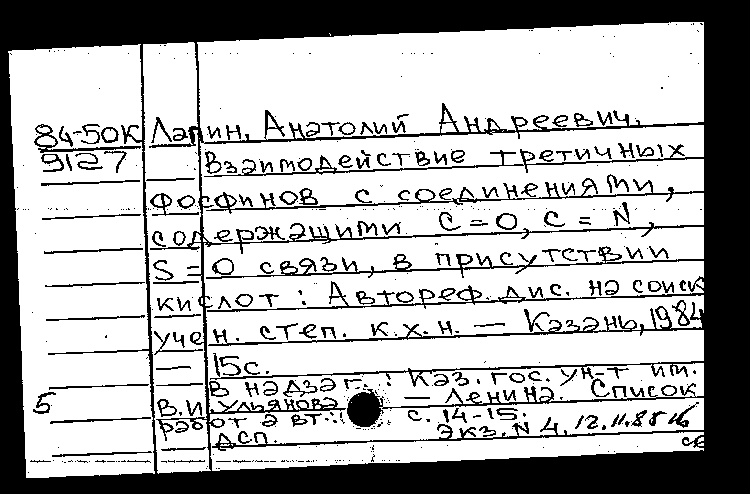 84-50К Лапин, Анатолий Андреевич.
9127 Взаимодействие третичных
фосфинов с соединениями,
содержащими C=O, C=N,
S=O связи, в присутствии
кислот : Автореф. дис. на соиск
учен. степ. к.х.н. — Казань, 1984
— 15с.
В надзаг. : Каз. гос. ун-т им.
5 В.И. Ульянова — Ленина. Список
работ авт.: с. 14-15.
ДСП. Экз. N 4. 12.11.85